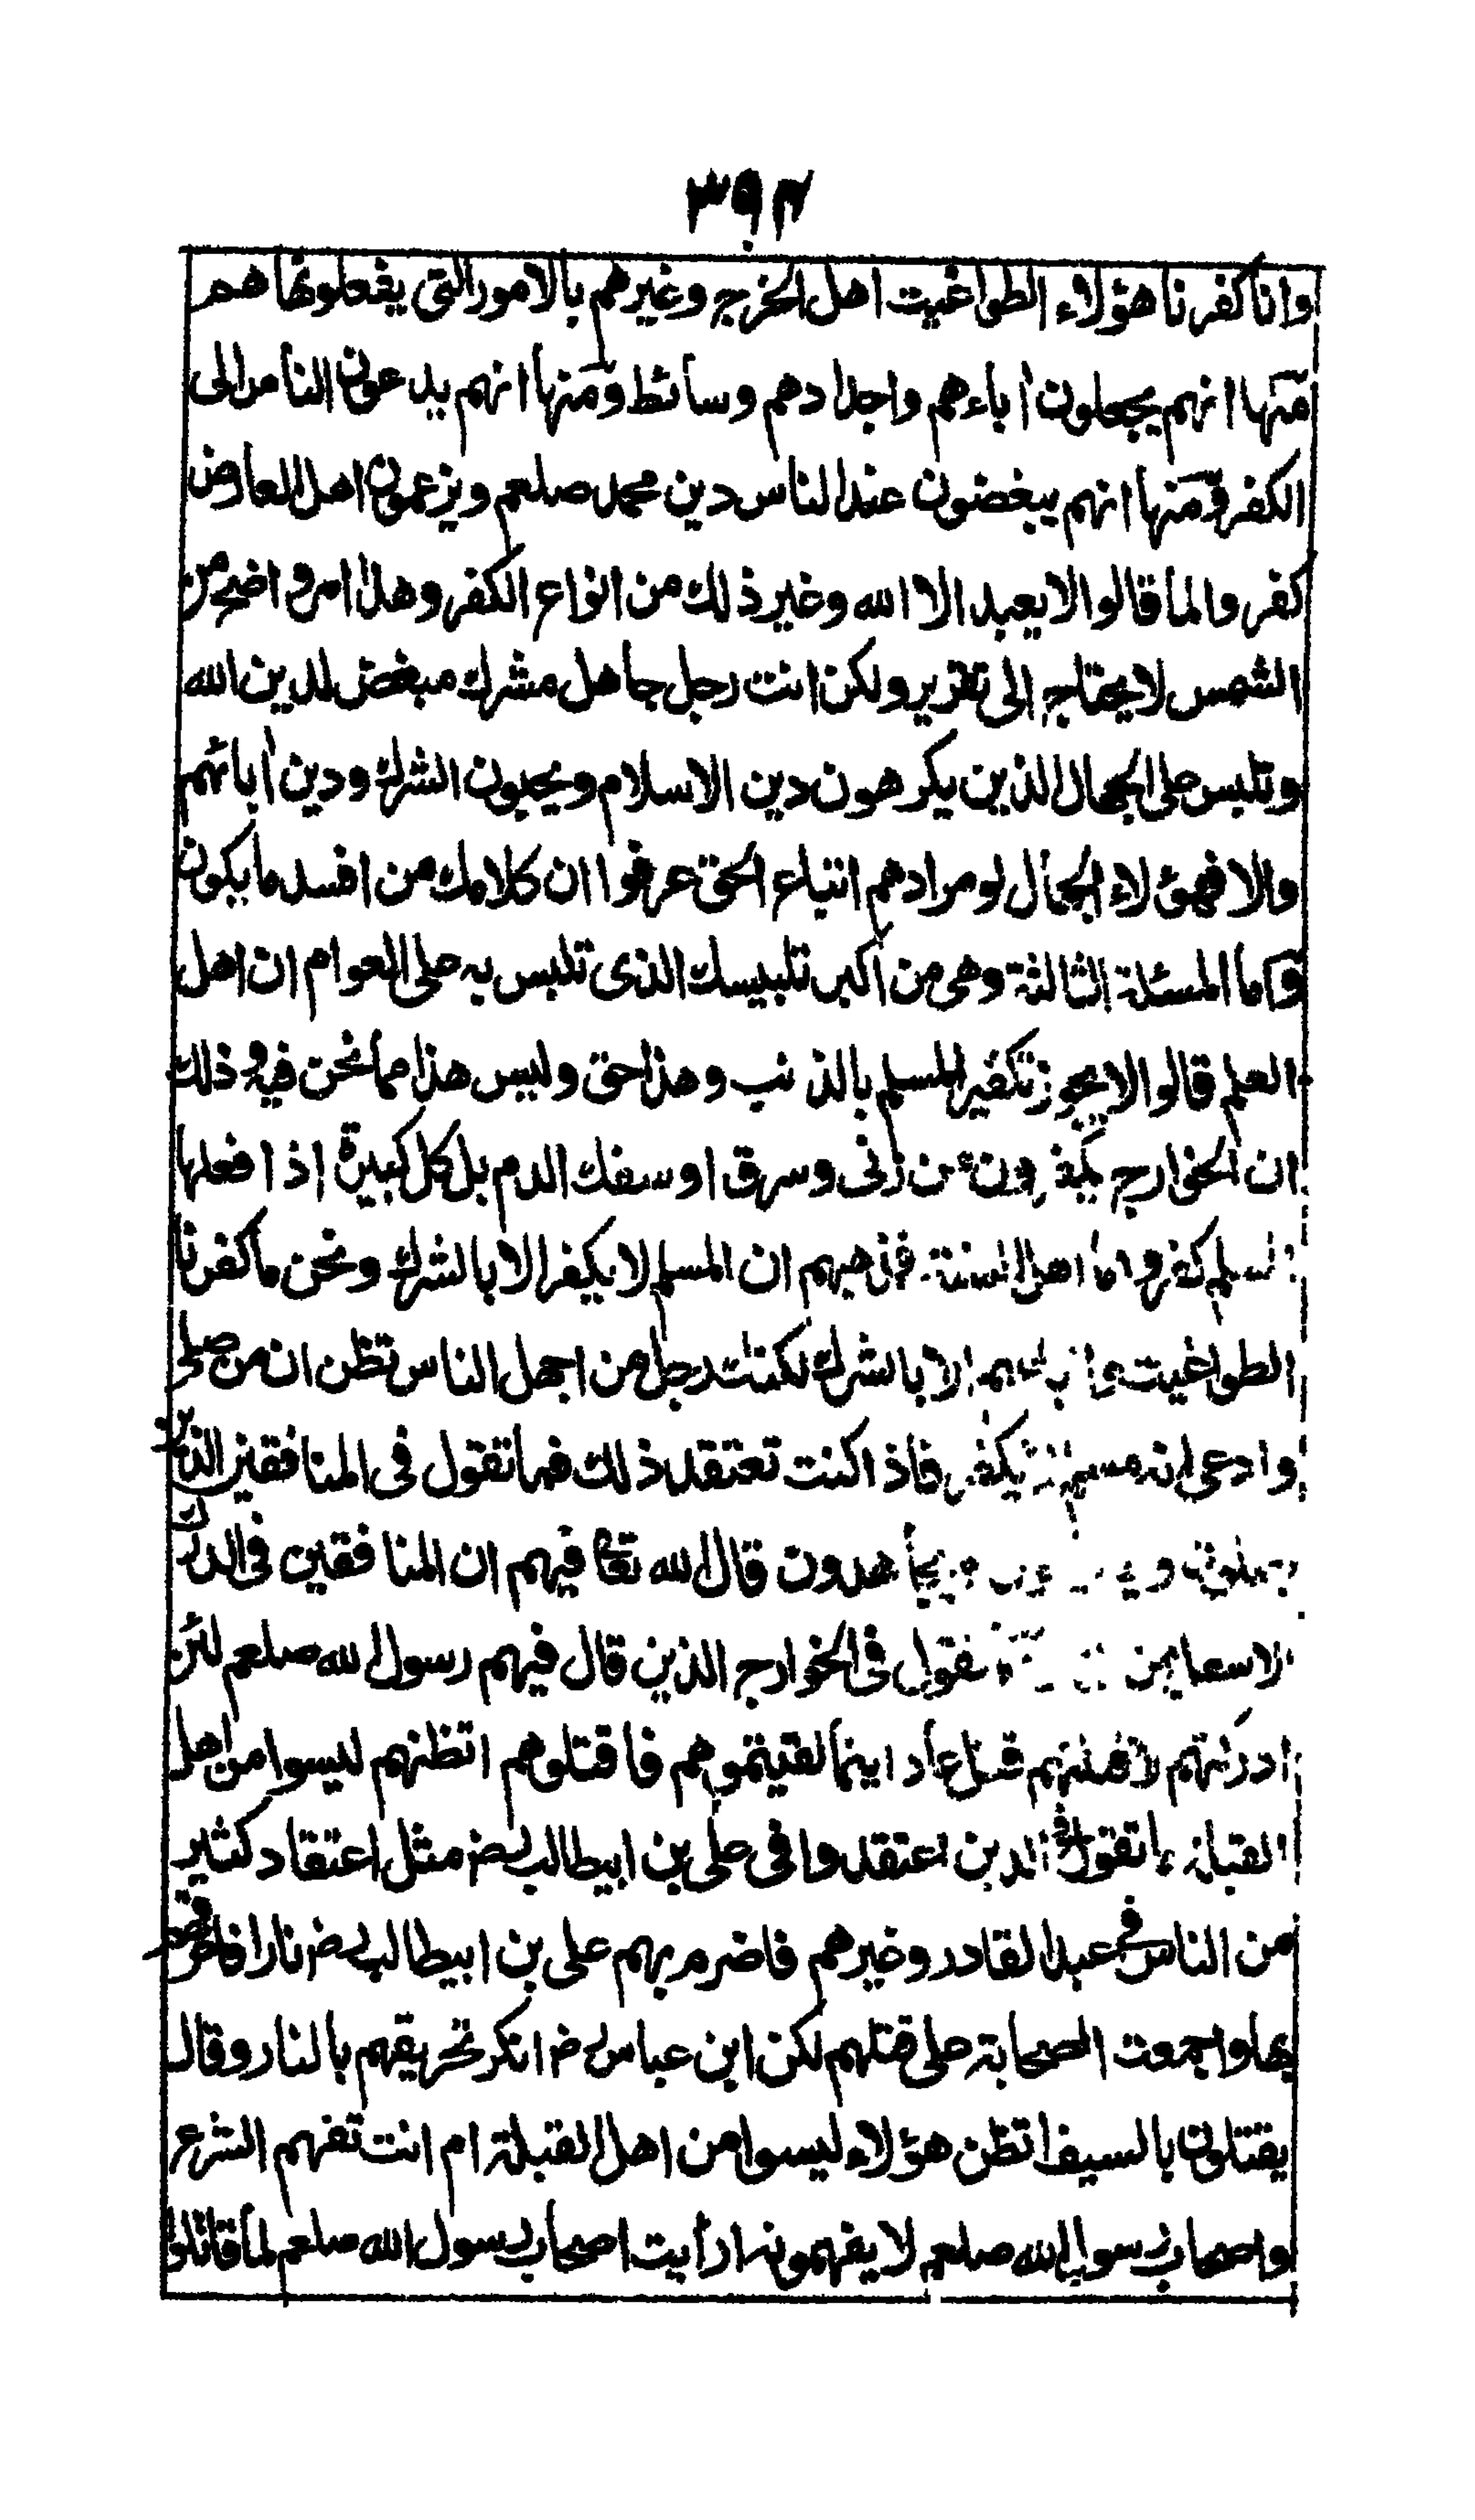 ٣٩٢
وانا كفرنا هؤلاء الطواغيت اهل الخرج وغيرهم بالامور التى يفعلونها هم
منها انهم يجعلون آباءهم واجدادهم وسائط ومنها انهم يدعون الناس الى
الكفر ومنها انهم يبغضون عند الناس دين محمد صلعم ويزعمون اهل العارض
كفروا لما قالوا لا يعبد الا الله وغير ذلك من انواع الكفر وهذا امر واضح من
الشمس لا يحتاج الى تقرير ولكن انت رجل جاهل مشرك مبغض لدين الله
وتلبس على الجهال الذين يكرهون دين الاسلام ويحبون الشرك ودين آبائهم
والا فهؤلاء الجهال لو مرادهم اتباع الحق عرفوا ان كلامك من افسد ما يكون
واما المسئلة الثالثة وهى من اكبر تلبيسك الذى تلبس به على العوام ان اهل
العلم قالوا لا يجوز تكفير المسلم بالذنب وهذا حق وليس هذا مما نحن فيه وذلك
ان الخوارج يكفرون من زنى وسرق او سفك الدم بل كل كبيرة اذا فعلها
المسلم كفر واما اهل السنة فمذهبهم ان المسلم لا يكفر الا بالشرك ونحن ما كفرنا
الطواغيت واتباعهم الا بالشرك لكنك رجل من اجهل الناس تظن ان من صلى
وادعى انه مسلم لا يكفر فاذا كنت تعتقد ذلك فما تقول فى المنافقين الذين
يصلون و يجاهدون قال الله تعا فيهم ان المنافقين فى الدرك
الاسفل من تقول فى الخوارج الذين قال فيهم رسول الله صلعم لئن
ادركتهم لاقتلنهم قتل عاد اينما لقيتموهم فاقتلوهم اتظنهم ليسوا من اهل
القبلة ما تقول فى الذين اعتقدوا فى على بن ابيطالب رض مثل اعتقاد كثير
من الناس فى عبد القادر وغيرهم فاضرم بهم على بن ابيطالب رض نارا فاحرقهم
بها واجمعت الصحابة على قتلهم لكن ابن عباس رض انكر تحريقهم بالنار وقال
يقتلون بالسيف اتظن هؤلاء ليسوا من اهل القبلة ام انت تفهم الشرع
واصحاب رسول الله صلعم لا يفهمونه ارأيت اصحاب رسول الله صلعم لما قاتلوا